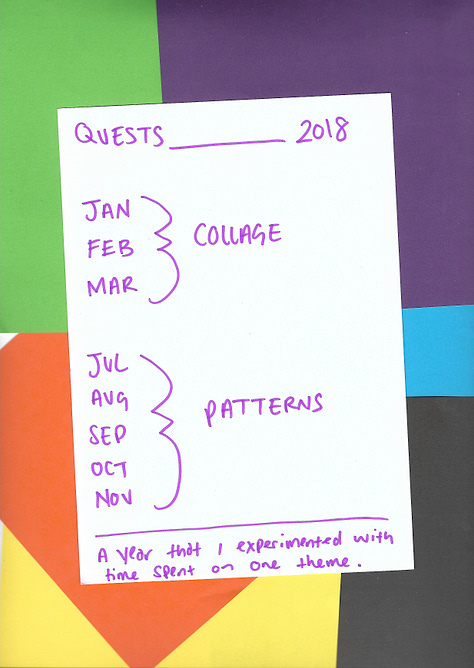 QUESTS ________ 2018
JAN
FEB
MAR
COLLAGE
JUL
AUG
SEP
OCT
NOV
PATTERNS
A year that I experimented with
time spent on one theme.